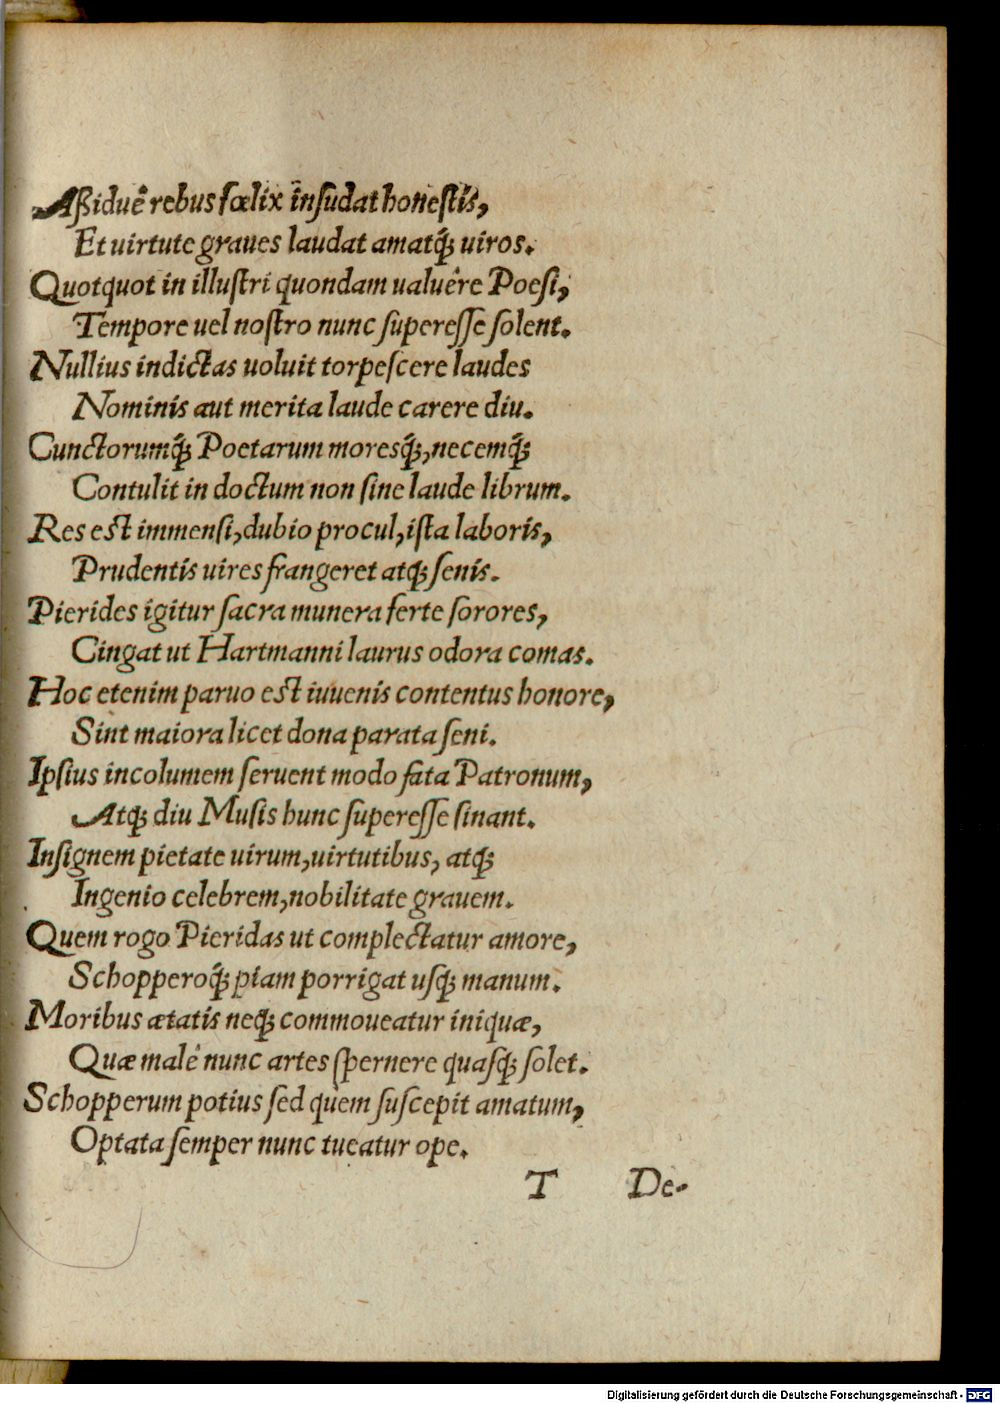 Aßiduè rebus fœlix insudat honestis,
Et uirtute graues laudat amatq́; uiros.
Quotquot in illustri quondam ualuêre Poesi,
Tempore uel nostro nunc superesse solent.
Nullius indictas uoluit torpescere laudes
Nominis aut merita laude carere diu.
Cunctorumq́; Poetarum moresq́;, necemq́;
Contulit in doctum non sine laude librum.
Res est immensi, dubio procul, ista laboris,
Prudentis uires frangeret atq; senis.
Pierides igitur sacra munera ferte sorores,
Cingat ut Hartmanni laurus odora comas.
Hoc etenim paruo est iuuenis contentus honore,
Sint maiora licet dona parata seni.
Ipsius incolumem seruent modo fata Patronum,
Atq; diu Musis hunc superesse sinant.
Insignem pietate uirum, uirtutibus, atq;
Ingenio celebrem, nobilitate grauem.
Quem rogo Pieridas ut complectatur amore,
Schopperoq́; piam porrigat usq; manum.
Moribus ætatis neq; commoueatur iniquæ,
Quæ malè nunc artes spernere quasq; solet.
Schopperum potius sed quem suscepit amatum,
Optata semper nunc tueatur ope.
T De-
Digitalisierung gefördert durch die Deutsche Forschungsgemeinschaft - DFG